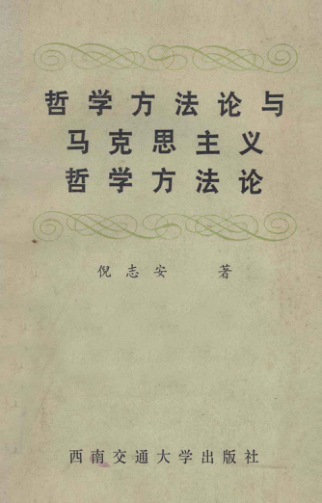 哲学方法论与
马克思主义
哲学方法论
倪志安 著
西南交通大学出版社